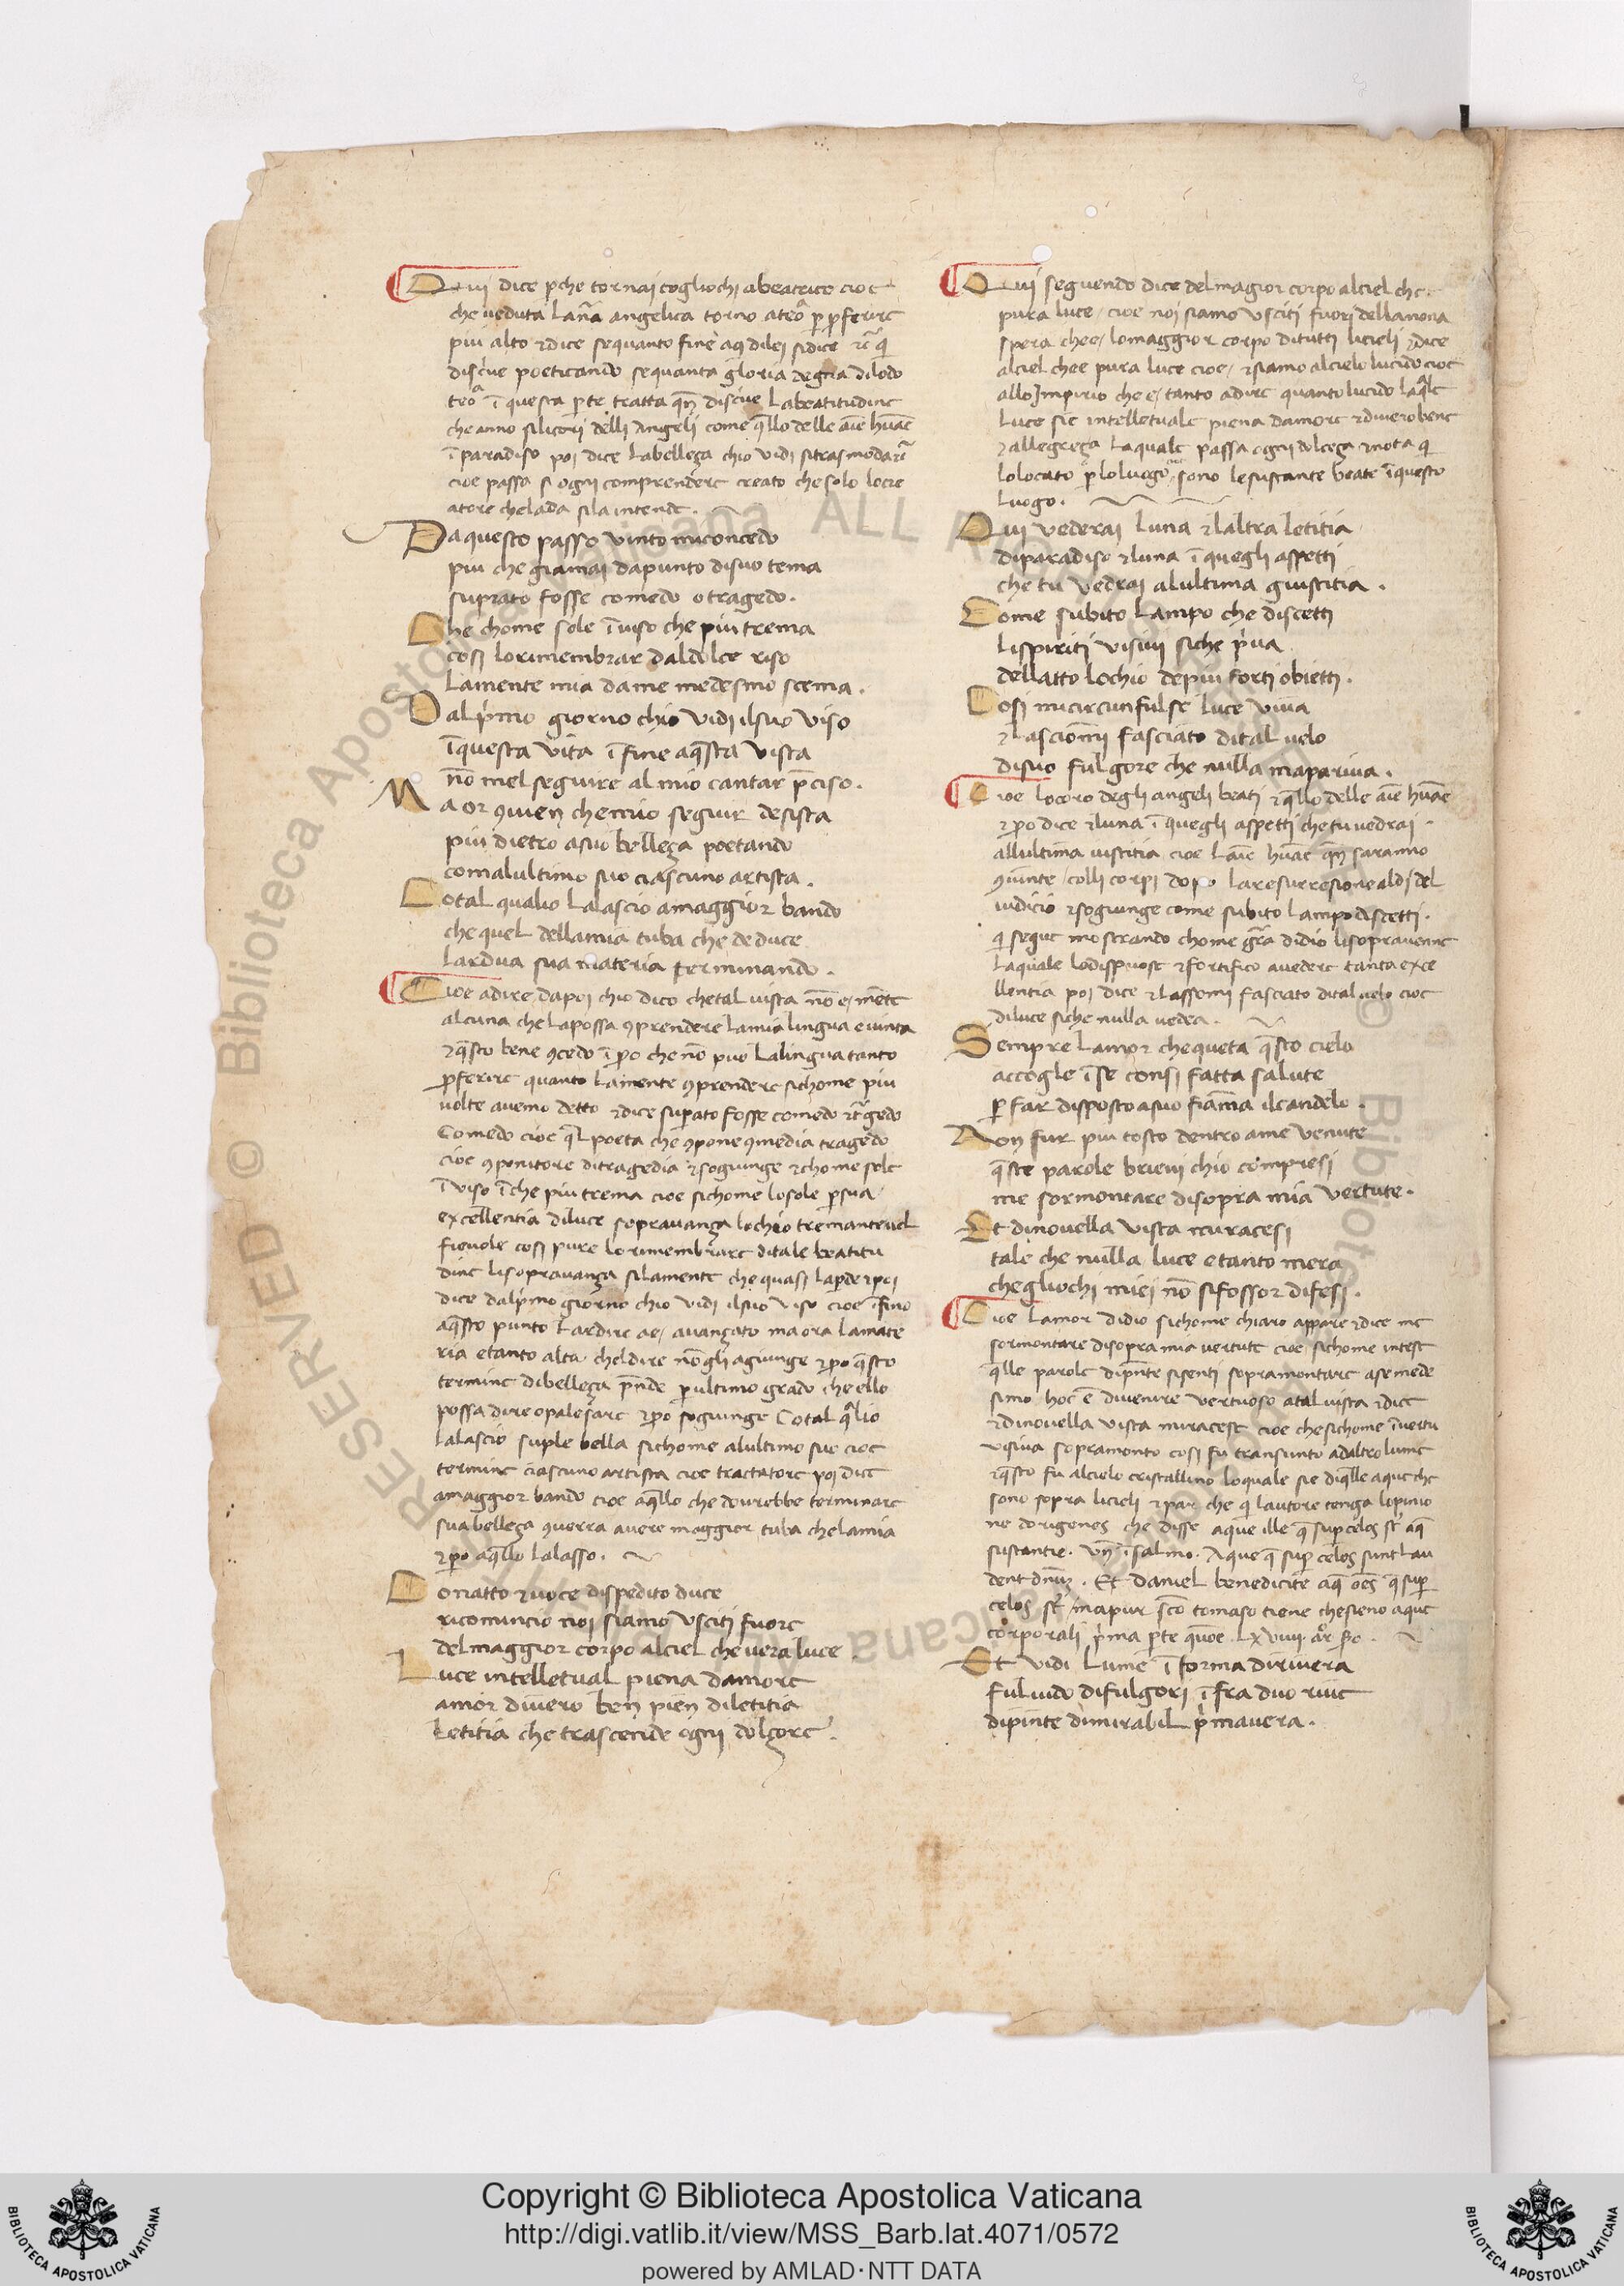 Qui dice p̱che tornai cogliochi abeatrice cioe
che ueduta lanĩa angelica torno ateõ p̱ p̱ferire
piu alto ⁊dice sequanto fine aq̃ dilei sidice ⁊c̃ q̃
discͥue poeticando sequanta gloria degna dilodo
teõ ĩ questa p̱te tratta qñ discͥue labeatitudine
che anno silicori delli angeli come q̃llo delle aĩe hũãe
ĩ paradiso poi dice labelleça chio uidi sitrasmodarĩ
cioe passa si ogni comprendere creato che solo locre
atore chelada sila intende.
Da questo passo vinto miconcedo
piu che giamai dapunto disuo tema
suprato fosse comedo o tragedo.
Che chome sole ĩ uiso che piu trema
cosi lorimembrar daldolce riso
lamente mia da me medesmo scema.
Dalpͥmo giorno chio vidi ilsuo viso
ĩ questa vita ĩ fine aq̃sta vista
nõ mel seguire al mio cantar p̃ciso.
Ma or ꝯuien che mio seguir desista
piu dietro asuo belleça poetando
comalultimo suo ciascuno artista.
Cotal qualio lalascio amaggior bando
che quel dellamia tuba che deduce
lardua sua materia terminando.
Cioe adire dapoi chio dico chetal uista nõ e mẽte
alcuna che lapossa ꝯprendere lamia lingua e uinta
⁊q̃sto bene ꝯcedo ĩ p̱o che nõ puo lalingua tanto
p̱ferire quanto lamente ꝯprendere sichome piu
uolte auemo detto ⁊dice sup̱ato fosse comedo ⁊tr̃gedo
Comedo cioe q̃l poeta che ꝯpone ꝯmedia tragedo
cioe ꝯponitore ditragedia ⁊sogiunge ⁊chome sole
ĩ uiso ĩ che piu trema cioe sichome losole p̱ sua
excellentia diluce soprauança lochio tremante ⁊el
fieuole cosi pure lo rimembrare ditale beatitu
dine lisoprauança silamente che quasi lap̱de ⁊poi
dice dalpͥmo giorno chio vidi ilsuo viso cioe ĩ fino
aq̃sto punto lardire ae auançato ma ora lamate
ria etanto alta cheldire nõ gli agiunge ⁊p̱o q̃sto
termine dibelleça p̃nde p̱ ultimo grado che ello
possa dire opalesare ⁊p̱o sogiunge Cotal q̃lio
lalascio suple bella sichome alultimo suo cioe
termine ciascuno artista cioe tractatore poi dice
amaggior bando cioe aq̃llo che dourebbe terminare
sua belleça ꝯuerra auere maggior tuba chelamia
⁊p̱o aq̃llo lalasso.
Con atto ⁊uoce dispedito duce
ricomincio noi siamo vsciti fuore
del maggior corpo alciel che uera luce.
Luce intelletual piena damore
amor diuero ben pien diletitia
letitia che trascende ogni dolçore.
Qui seguendo dice delmagior corpo alciel che.
pura luce. cioe noi siamo vsciti fuori dellanona
spera chee lomaggior corpo ditutti licieli ⁊dice
alciel chee pura luce cioe ⁊siamo alcielo lucido cioe
allo Impirio che e tanto adire quanto lucido laq̃le
luce sie intelletuale piena damore ⁊diuero bene
⁊allegreça laquale passa ogni dolceça ⁊nota q̃
lolocato p̱ loluogo cioe sono lesustante beate ĩ questo
luogo.
Qui vederai luna ⁊laltra letitia
diparadiso ⁊luna ĩ quegli aspetti
che tu vedrai alultima giustitia.
Come subito lampo che discetti
lispiriti visiui siche pͥua
dellatto lochio depiu forti obietti.
Cosi micircunfulse luce viua
⁊lascionmi fasciato dital uelo
disuo fulgore che nulla mapariua.
Cioe locoro degli angeli beati ⁊q̃llo delle aĩe hũãe
⁊p̱o dice ⁊luna ĩ quegli aspetti chetu uedrai
allultima iustitia cioe laĩe hũãe qñ saranno
ꝯuinte colli corpi dopo laresurresione aldi del
iudicio ⁊sogiunge come subito lampo discetti.
q̃ segue mostrando chome gr̃a didio lisoprauenne
laquale lodispuose ⁊fortifico auedere tanta exce
llentia poi dice ⁊lassomi fasciato dital uelo cioe
diluce siche nulla uedea.
Sempre lamor chequeta q̃sto cielo
accogle ĩ se consi fatta salute
p̱ far disposto asuo fiam̃a il candelo.
Non fur piu tosto dentro ame venute
q̃ste parole brieui chio compresi
me sormontare disopra mia vertute.
Et dinouella vista miracesi
tale che nulla luce etanto mera
chegliochi miei nõ sifossor difesi.
Cioe lamor didio sichome chiaro appare ⁊dice me
sormontare disopra mia vertute cioe sichome intese
q̃lle parole dip̃nte sisenti sopramontare ase mede
simo hoc ẽ diuenire vertuoso atal uista ⁊dice
⁊dinouella vista miracese cioe chesichome ĩ uertu
visiua sopramonto cosi fu transunto adaltro lume
⁊q̃sto fu alcielo cristallino loquale sie diq̃lle aque che
sono sopra licieli ⁊par che q̃ lautore tenga lopinio
ne dorigenes che disse aque ille q̃ sup̱ celos st̃ aq̃
sustantie. Vñ ĩ salmo. Aque q̃ sup̱ celos sunt lau
dent dñm. Et daniel benedicite aq̃ oẽs q̃ sup̱
celos st̃ mapur sc̃o tomaso tiene chesieno aque
corporali pͥma p̱te quõe lxviiii ar̃ p̱o.
Et vidi lume ĩ forma diriuera
fuluido difulgori ĩ fra duo riue
dipinte dimirabil pͥmauera.
Copyright © Biblioteca Apostolica Vaticana
http://digi.vatlib.it/view/MSS_Barb.lat.4071/0572
powered by AMLAD·NTT DATA